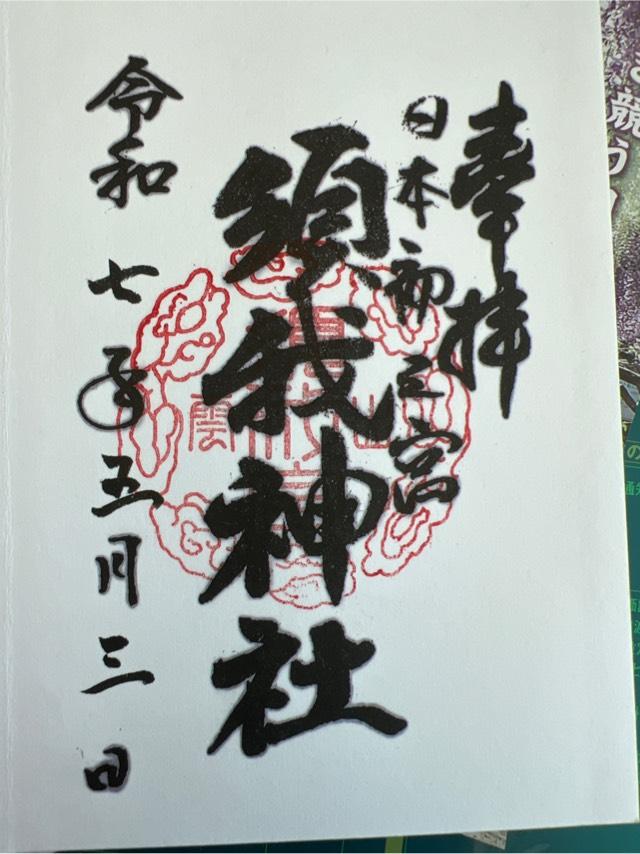 奉拝
日本初之宮
須我神社
令和七年五月三日